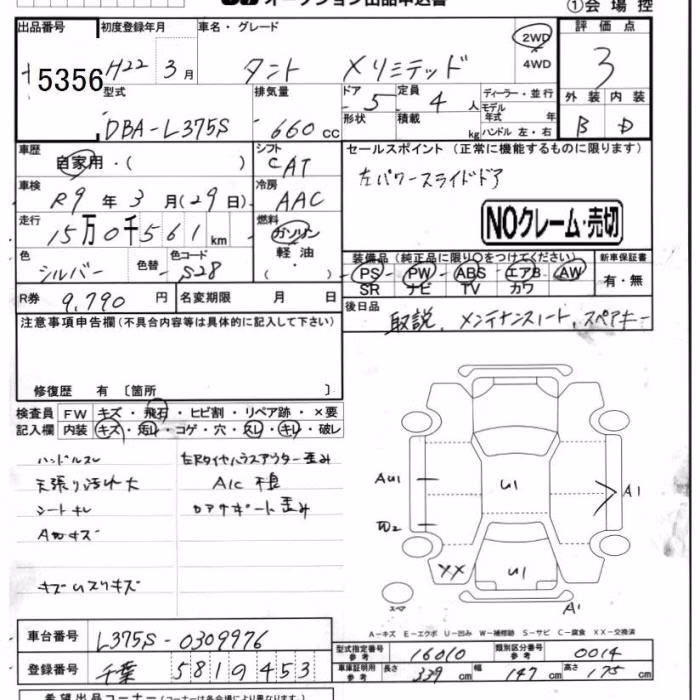 オークション出品申込書
①会場控
出品番号 初度登録年月 車名・グレード 評価点
5356 H22 3月 タント Xリミテッド 2WD 4WD 3
型式 排気量 ドア 5 定員 4人 ディーラー・並行 外装 内装
DBA-L375S 660cc 形状 積載 kg モデル年式 年 ハンドル 左・右 B D
車歴 シフト セールスポイント(正常に機能するものに限ります)
自家用・( ) CAT 左パワースライドドア
車検 冷房
R9年3月(29日) AAC
NOクレーム・売切
走行 燃料
15万0千561km ガソリン 軽油・( )
装備品(純正品に限り○をつけてください) 新車保証書
色 色替 色コード PS PW ABS エアB AW 有・無
シルバー S28 SR ナビ TV カワ
R券 9,790円 名変期限 月 日 後日品
取説、メンテナンスノート、スペアキー
注意事項申告欄(不具合内容等は具体的に記入して下さい)
修復歴 有 〔箇所 〕
検査員 FW キズ・飛石・ヒビ割・リペア跡・×要
記入欄 内装 キズ・汚レ・コゲ・穴・スレ・キレ・破レ
ハンドルスレ 左Rタイヤハウスアウター歪み
天張り汚れ大 A/C不良
シートキレ コアサポート歪み
キズ
AU1 U1 A1
XX U1 A1
スペア
A-キズ E-エクボ U-凹み W-補修跡 S-サビ C-腐食 XX-交換済
車台番号 L375S-0309976
型式指定番号 参考 16010 類別区分番号 参考 0014
登録番号 千葉 581 453
車庫証明用 参考 長さ 339cm 幅 147cm 高さ 175cm
希望出品コーナー(コーナーは各会場により異なります)